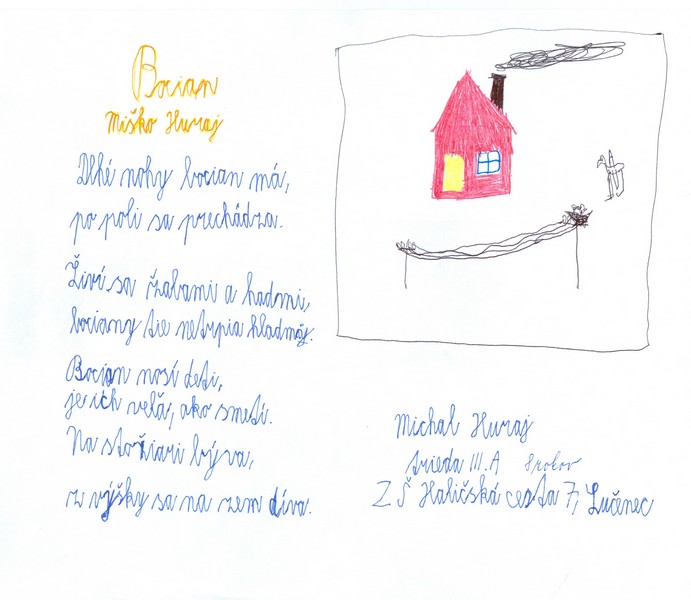 Bocian
Miško Huraj
Dlhé nohy bocian má,
po poli sa prechádza.
Živí sa žabami a hadmi,
bociany tie netrpia hladmi.
Bocian nosí deti,
je ich veľa, ako smetí.
Na stožiari býva,
z výšky sa na zem díva.
Michal Huraj
trieda III.A 8 rokov
ZŠ Haličská cesta 7, Lučenec